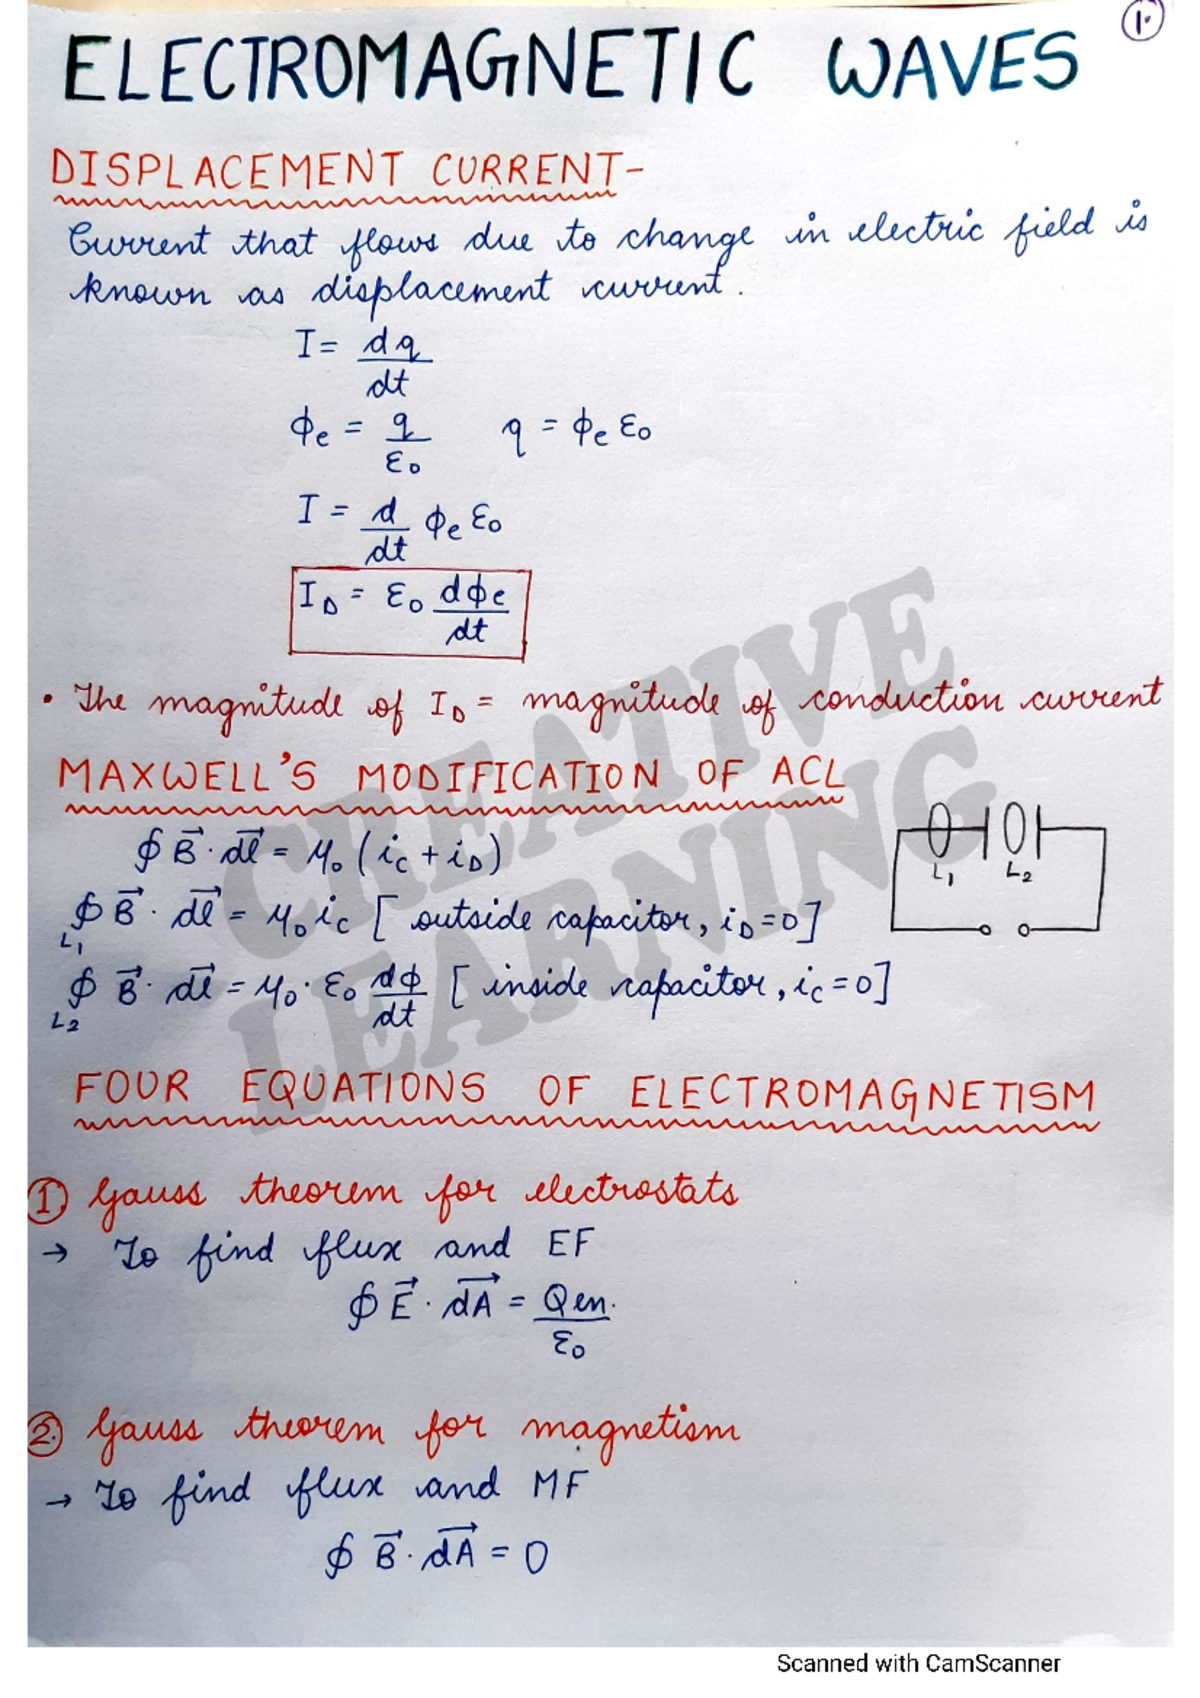 1.
ELECTROMAGNETIC WAVES
DISPLACEMENT CURRENT-
Current that flows due to change in electric field is
known as displacement current.
I = dq/dt
ϕe = q/ε0    q = ϕe ε0
I = d/dt ϕe ε0
ID = ε0 dϕe/dt
• The magnitude of ID = magnitude of conduction current
MAXWELL'S MODIFICATION OF ACL
∮ B⃗ · dl⃗ = μ0 (ic + iD)
∮L1 B⃗ · dl⃗ = μ0 ic [outside capacitor, iD = 0]
∮L2 B⃗ · dl⃗ = μ0 · ε0 dϕ/dt [inside capacitor, ic = 0]
L1 L2
FOUR EQUATIONS OF ELECTROMAGNETISM
① Gauss theorem for electrostats
→ To find flux and EF
∮ E⃗ · dA⃗ = Qen./ε0
② Gauss theorem for magnetism
→ To find flux and MF
∮ B⃗ · dA⃗ = 0
CREATIVE
LEARNING
Scanned with CamScanner